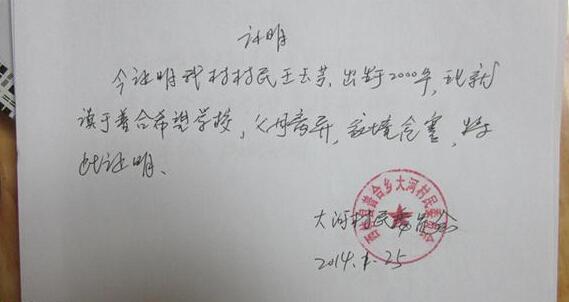 证明
今证明我村村民王玉芳,出生于2000年,现就
读于普合希望学校,父母离异,家境贫寒,特
此证明。
普合乡大河村民委员会
大河村民委员会
2014.1.25